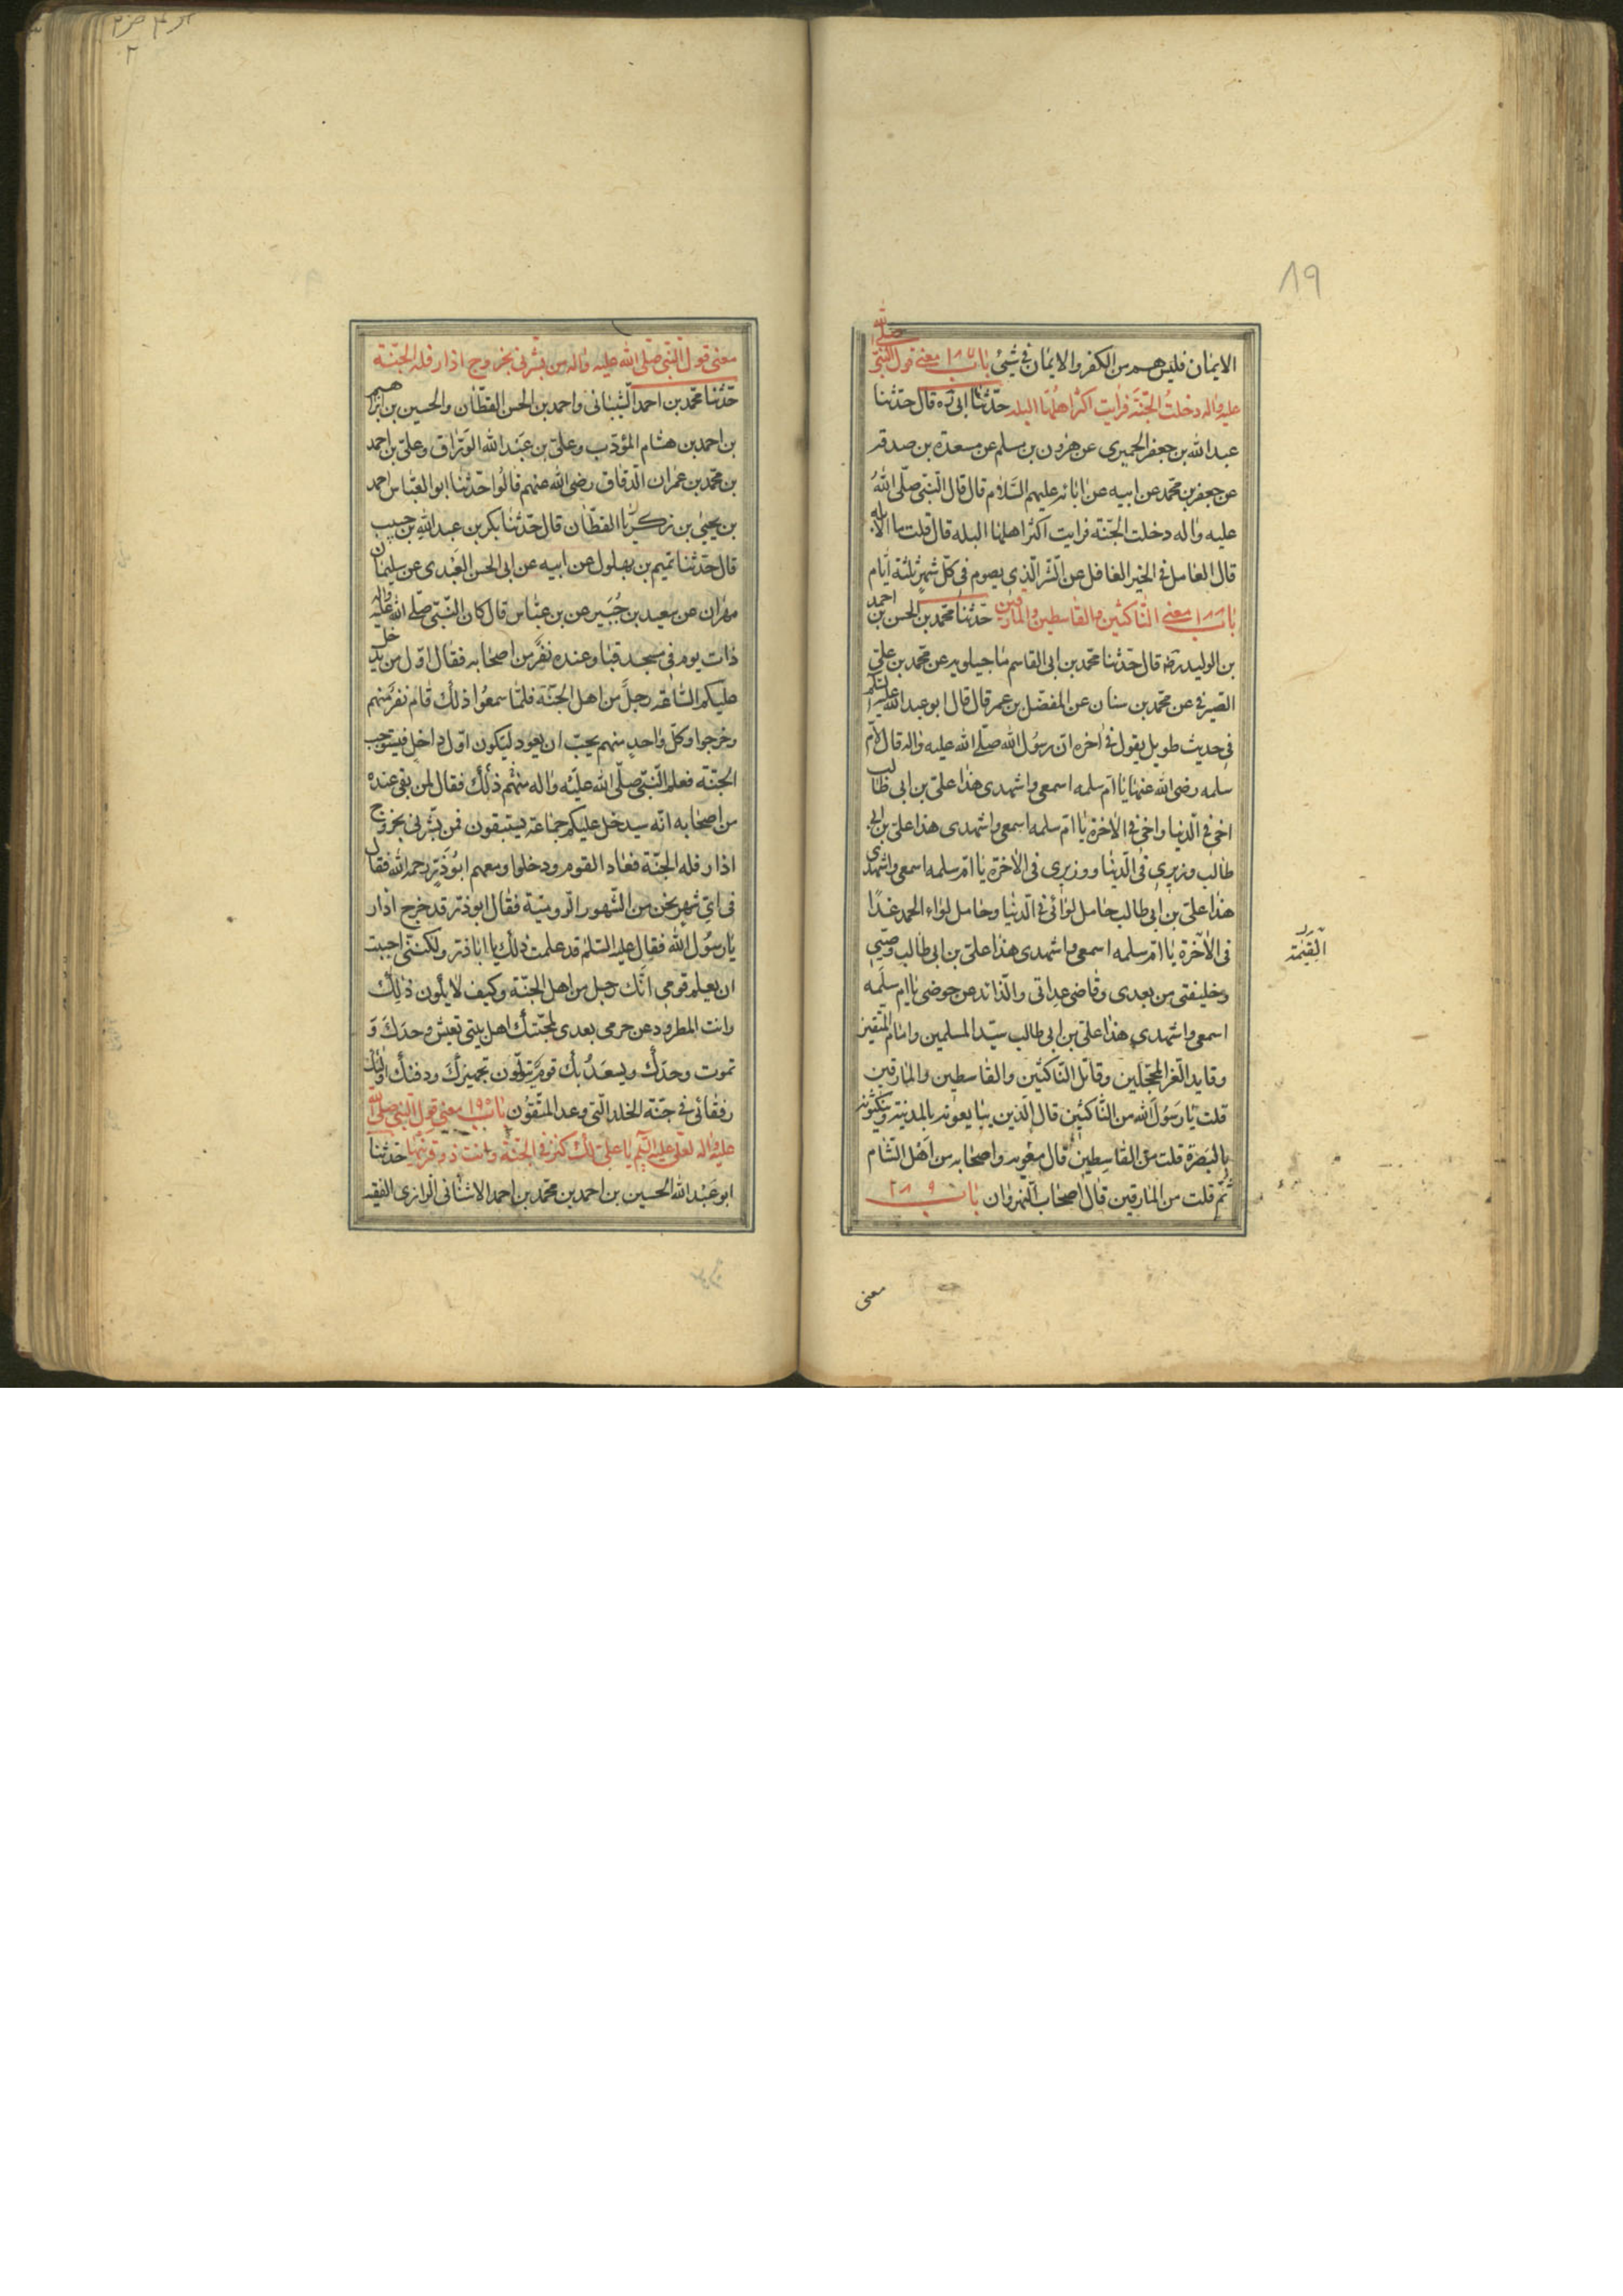 ٨٩
الايمان فليس هم من الكفر والايمان فى شيئ باب ١٨٧ معنى قول النبى صلى الله
عليه واله دخلت الجنة فرايت اكثر اهلها البله حدثنا ابى ره قال حدثنا
عبد الله بن جعفر الحميرى عن هرون بن مسلم عن مسعدة بن صدقه
عن جعفر بن محمد عن ابيه عن ابائه عليهم السلام قال قال النبى صلى الله
عليه واله دخلت الجنة فرايت اكثر اهلها البله قال قلت ما الابله
قال العاقل فى الخير الغافل عن الشر الذى يصوم فى كل شهر ثلثة ايام
باب ١٨٨ معنى الناكثين والقاسطين والمارقين حدثنا محمد بن الحسن بن احمد
بن الوليد رضه قال حدثنا محمد بن ابى القاسم ماجيلويه عن محمد بن على
الصيرفى عن محمد بن سنان عن المفضل بن عمر قال قال ابو عبد الله عليه السلم
فى حديث طويل يقول فى اخره ان رسول الله صلى الله عليه واله قال لام
سلمه رضى الله عنها يا ام سلمه اسمعى واشهدى هذا على بن ابى طالب
اخى فى الدنيا واخى فى الاخرة يا ام سلمه اسمعى واشهدى هذا على بن ابى
طالب وزيرى فى الدنيا ووزيرى فى الاخرة يا ام سلمه اسمعى واشهدى
هذا على بن ابى طالب حامل لوائى فى الدنيا وحامل لواء الحمد غدا
فى الاخرة يا ام سلمه اسمعى واشهدى هذا على بن ابى طالب وصيى
وخليفتى من بعدى وقاضى عداتى والذائد عن حوضى يا ام سلمه
اسمعى واشهدى هذا على بن ابى طالب سيد المسلمين وامام المتقين
وقايد الغر المحجلين وقاتل الناكثين والقاسطين والمارقين
قلت يا رسول الله من الناكثين قال الذين يبايعونه بالمدينة وينكثونه
بالبصرة قلت من القاسطين قال معويه واصحابه من اهل الشام
ثم قلت من المارقين قال اصحاب النهروان باب ١٨٩
القيمة
معنى
معنى قول النبى صلى الله عليه واله من بشرنى بخروج اذار فله الجنة
حدثنا محمد بن احمد الشيبانى واحمد بن الحسن القطان والحسين بن ابراهيم
بن احمد بن هشام المؤدب وعلى بن عبد الله الوراق وعلى بن احمد
بن محمد بن عمران الدقاق رضى الله عنهم قالوا حدثنا ابو العباس احمد
بن يحيى بن زكريا القطان قال حدثنا بكر بن عبد الله بن حبيب
قال حدثنا تميم بن بهلول عن ابيه عن ابى الحسن العبدى عن سليمان
مهران عن سعيد بن جبير عن بن عباس قال كان النبى صلى الله عليه واله
ذات يوم فى مسجد قبا وعنده نفر من اصحابه فقال اول من يدخل
عليكم الساعة رجل من اهل الجنة فلما سمعوا ذلك قام نفر منهم
وخرجوا وكل واحد منهم يحب ان يعود ليكون اول داخل فيستوجب
الجنة فعلم النبى صلى الله عليه واله منهم ذلك فقال لمن بقى عنده
من اصحابه انه سيدخل عليكم جماعة يستبقون فمن بشرنى بخروج
اذار فله الجنة فعاد القوم ودخلوا ومعهم ابوذر رحمه الله فقال
فى اى شهر نحن من الشهور الرومية فقال ابوذر قد خرج اذار
يا رسول الله فقال عليه السلم قد علمت ذلك يا اباذر ولكننى احببت
ان يعلم قومى انك رجل من اهل الجنة وكيف لا يكون ذلك
وانت المطرود عن حرمى بعدى لمحبتك اهل بيتى تعيش وحدك و
تموت وحدك ويسعد بك قوم يتولون تجهيزك ودفنك اولئك
رفقائى فى جنة الخلد التى وعد المتقون باب ١٩٠ معنى قول النبى صلى الله
عليه واله لعلى عليه السلم يا على لك كنز فى الجنة وانت ذو قرنيها حدثنا
ابو عبد الله الحسين بن احمد بن محمد بن احمد الاشنانى الرازى الفقيه